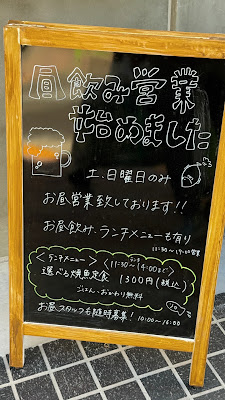 昼飲み営業
始めました
土、日曜日のみ
お昼営業致しております!!
お昼飲み、ランチメニューも有り
<ランチメニュー> <11:30~14:00まで>
選べる焼魚定食 1300円(税込)
ごはん・おかわり無料
お昼スタッフも随時募集! 10:00~16:00